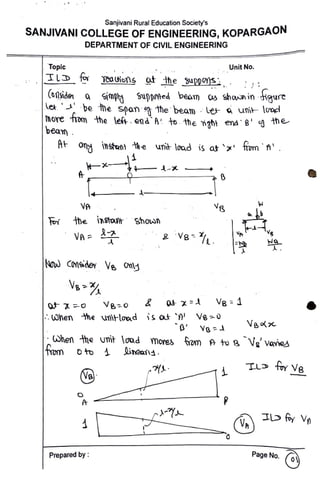 Sanjivani Rural Education Society's
SANJIVANI COLLEGE OF ENGINEERING, KOPARGAON
DEPARTMENT OF CIVIL ENGINEERING
Topic Unit No.
ILD for reactions at the supports:
Consider a simply supported beam as shown in figure
Let 'l' be the span of the beam. Let a unit load
move from the left end 'A' to the right end 'B' of the
beam.
At any instant the unit load is at 'x' from 'A'.
1
x l-x
A B
l
VA VB
For the instant shown
VA = l-x/l & VB = x/l.
W
a b
l
VA VB
=Wb/l Wa/l
Now Consider VB only
VB = x/l
at x=0 VB=0 & at x=l VB=1
∴ When the unit load is at 'A' VB=0
'B' VB=1
VB∝x
∴ When the unit load moves from A to B 'VB' varies
from 0 to 1 linearly.
VB x/l 1 ILD for VB
0
A B
1 l-x/l VA ILD for VA
0
Prepared by : Page No. 01